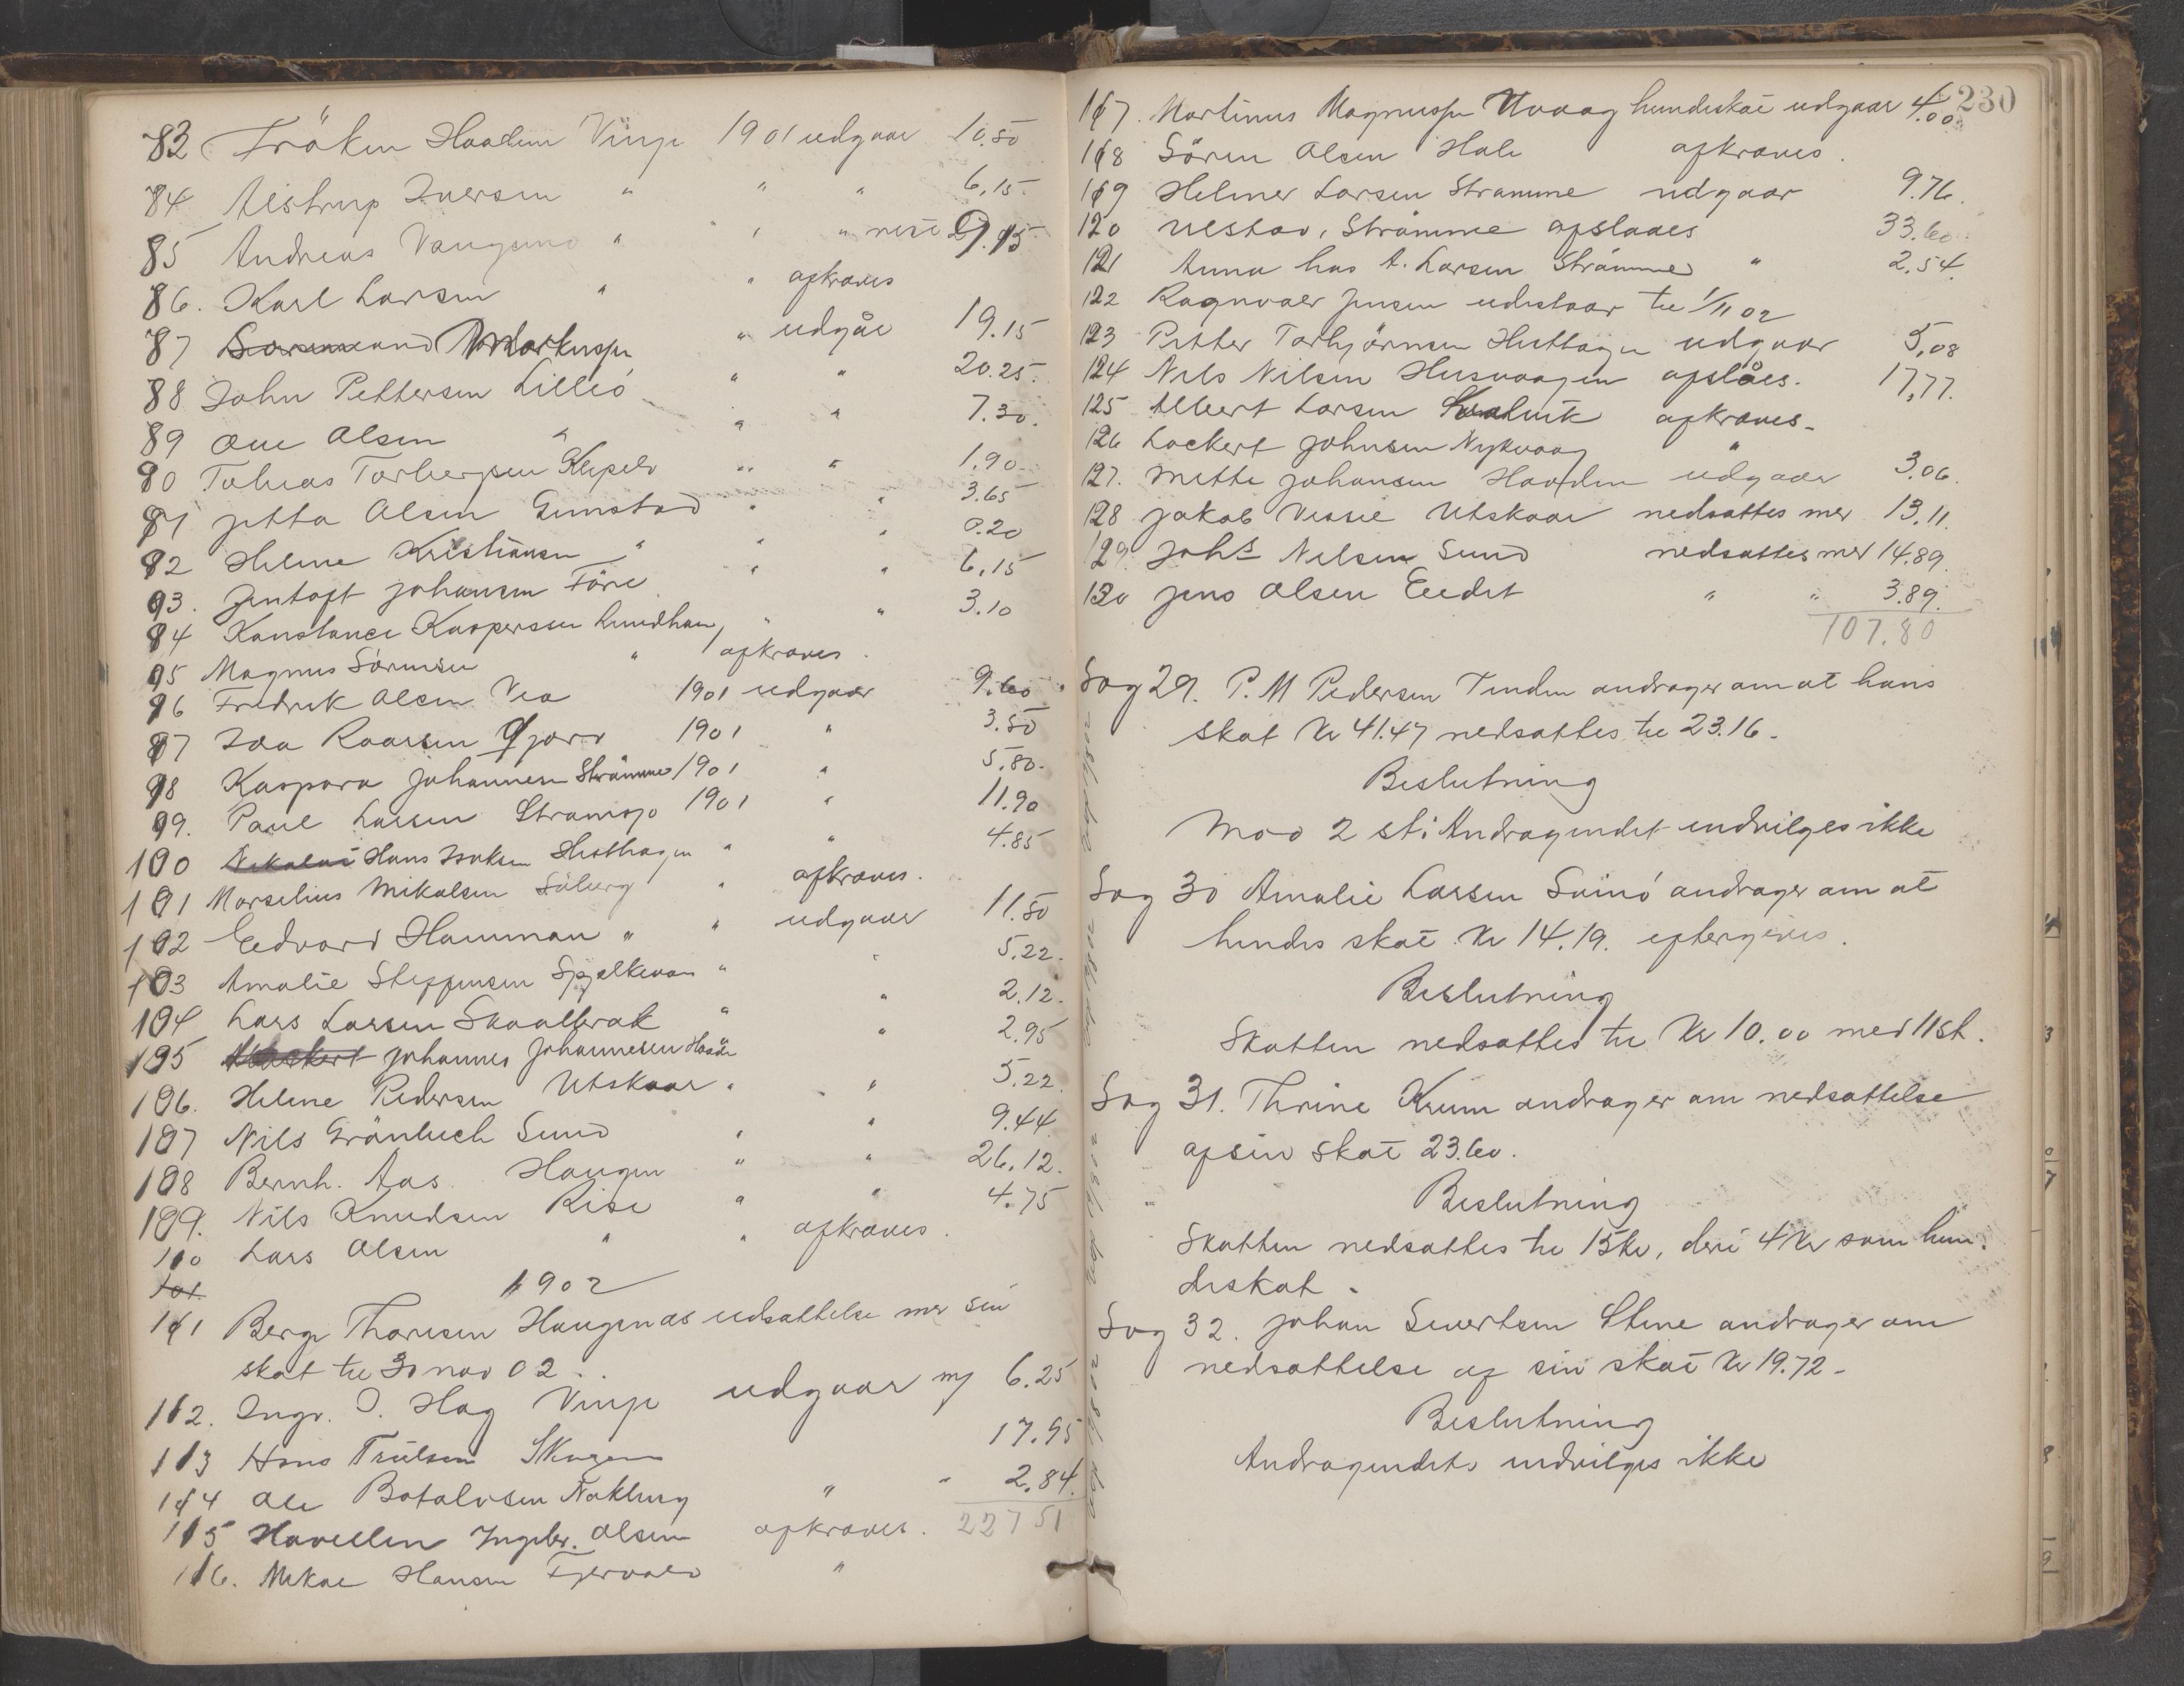 83 Fröken Haaden Vinje 1901 udgaar 10.50
84 Alstrup Iversen " " " 6.15
85 Andreas Vangsund " " " rest 9.95
86. Karl Larsen " " afkræves
87 Markussen " udgår 19.15
88 John Pettersen Lillø " " 20.25
89 Ole Olsen " " " 7.30
90 Tobias Torbergsen Klepsl " " 1.90
91 Jetta Olsen Gimstad " " 3.65
92 Heline Kristiansen " " " 0.20
93. Jentoft Johansen Före " " 6.15
94 Konstance Kaspersen Lundham, " " 3.10
95 Magnus Sörensen " afkræves.
96 Fredrik Olsen Vea 1901 udgaar 9.60
97 Ida Roarsen Gjærv 1901 " 3.50
98 Kaspara Johannesen Strömme 1901 " 5.80
99. Paul Larsen Stramsjo 1901 " 11.90
100 Nikolai Hans Isaksen Hesthagen " " 4.85
101 Marselius Mikalsen Söberg " afkræves.
102 Edvard Hamman " " udgaar 11.50
103 Amalie Steffensen Spjelkevaa " " 5.22
104 Lars Larsen Skaalbrak " " 2.12
105 Johannes Johannesen Haaden " 2.95
106. Heline Pedersen Utskaar " " 5.22
107 Nils Grönbech Sund " " 9.44
108 Bernh. Aas. Haugen " " 26.12
109. Nils Knudsen Rise " " 4.75
110 Lars Olsen " " afkræves.
101
1902
111 Berge Thoresen Haugenes udsættelse med sin
skat til 30 nov 02.
112. Ingv. J. Hag Vinje udgaar m/ 6.25
113 Hans Trulsen Skagen 17.95
114 Ole Botolvsen Nökling " " 2.84
115 Ingebr. Olsen afkræves. 227 51
116. Mikal Hansen Fjærvold "
230
117. Martinus Magnussen Uvaag hundeskat udgaar 4.00
118 Sören Olsen Hals afkræves.
119 Helmer Larsen Strömme udgaar 9.76.
120 Ulstad, Strömme afslaaes 33.60
121 Anna hos A. Larsen Strömme " 2.54.
122 Ragnvald Jensen udestaar til 1/11 02
123 Petter Torbjörnsen Hesthagen udgaar 5,08
124 Nils Nilsen Husvaagen afslåes. 17,77.
125 Albert Larsen afkræves.
126 Lockert Johnsen Nykvaag "
127. Mette Johansen Haaden udgaar 3.06.
128 Jakob Vessel Utskaar nedsættes med 13.11.
129. Johs Nilsen Sund nedsættes med 14.89.
130 Jens Olsen Eidet " " 3.89.
107.80
Sag 29. P. M Pedersen Tinden andrager om at hans
skat Kr 41.47 nedsættes til 23.16.
Beslutning
Mod 2 st: Andragendet indvilges ikke
Sag 30 Amalie Larsen Svinö andrager om at
hendes skat Kr 14.19. eftergives.
Beslutning
Skatten nedsættes til Kr 10.00 med 11 st.
Sag 31. Thrine Krum andrager om nedsættelse
af sin skat 23.60.
Beslutning
Skatten nedsættes til 15 kr, deri 4 Kr som hun-
deskat.
Sag 32. Johan Sivertsen Stene andrager om
nedsættelse af sin skat Kr 19.72.
Beslutning
Andragendets indvilges ikke